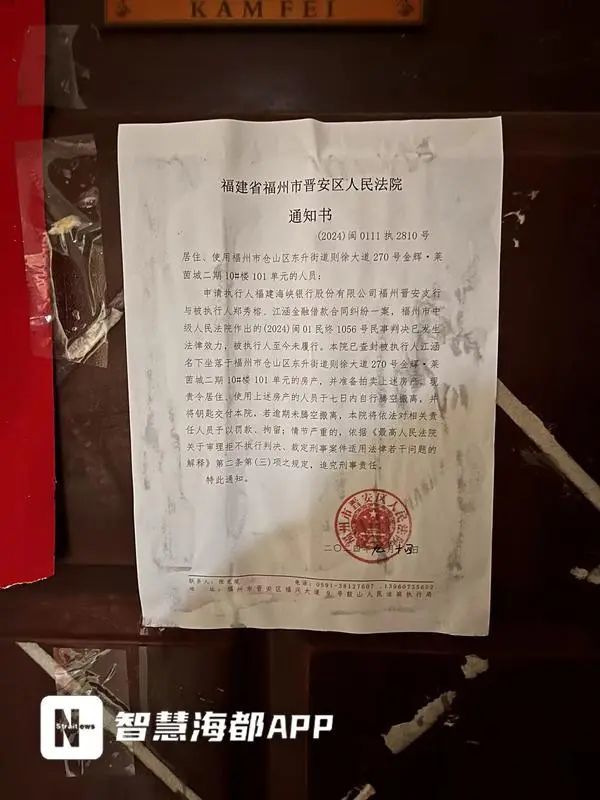 KAM FEI
福建省福州市晋安区人民法院
通知书
(2024)闽0111执2810号
居住、使用福州市仓山区东升街道则徐大道270号金辉·莱
茵城二期10#楼101单元的人员：
申请执行人福建海峡银行股份有限公司福州晋安支行
与被执行人郑秀榕、江涵金融借款合同纠纷一案，福州市中
级人民法院作出的(2024)闽01民终1056号民事判决已发生
法律效力，被执行人至今未履行。本院已查封被执行人江涵
名下坐落于福州市仓山区东升街道则徐大道270号金辉·莱
茵城二期10#楼101单元的房产，并准备拍卖上述房产。现
责令居住、使用上述房产的人员于七日内自行腾空搬离，并
将钥匙交付本院，若逾期未腾空搬离，本院将依法对相关责
任人员予以罚款、拘留；情节严重的，依据《最高人民法院
关于审理拒不执行判决、裁定刑事案件适用法律若干问题的
解释》第二条第(三)项之规定，追究刑事责任。
特此通知。
福州市晋安区人民法院
二〇二四年 月 日
联系人：
电话：0591-38127607
地 址：福州市晋安区福兴大道9号鼓山人民法庭执行局
N
Straitnews
智慧海都APP